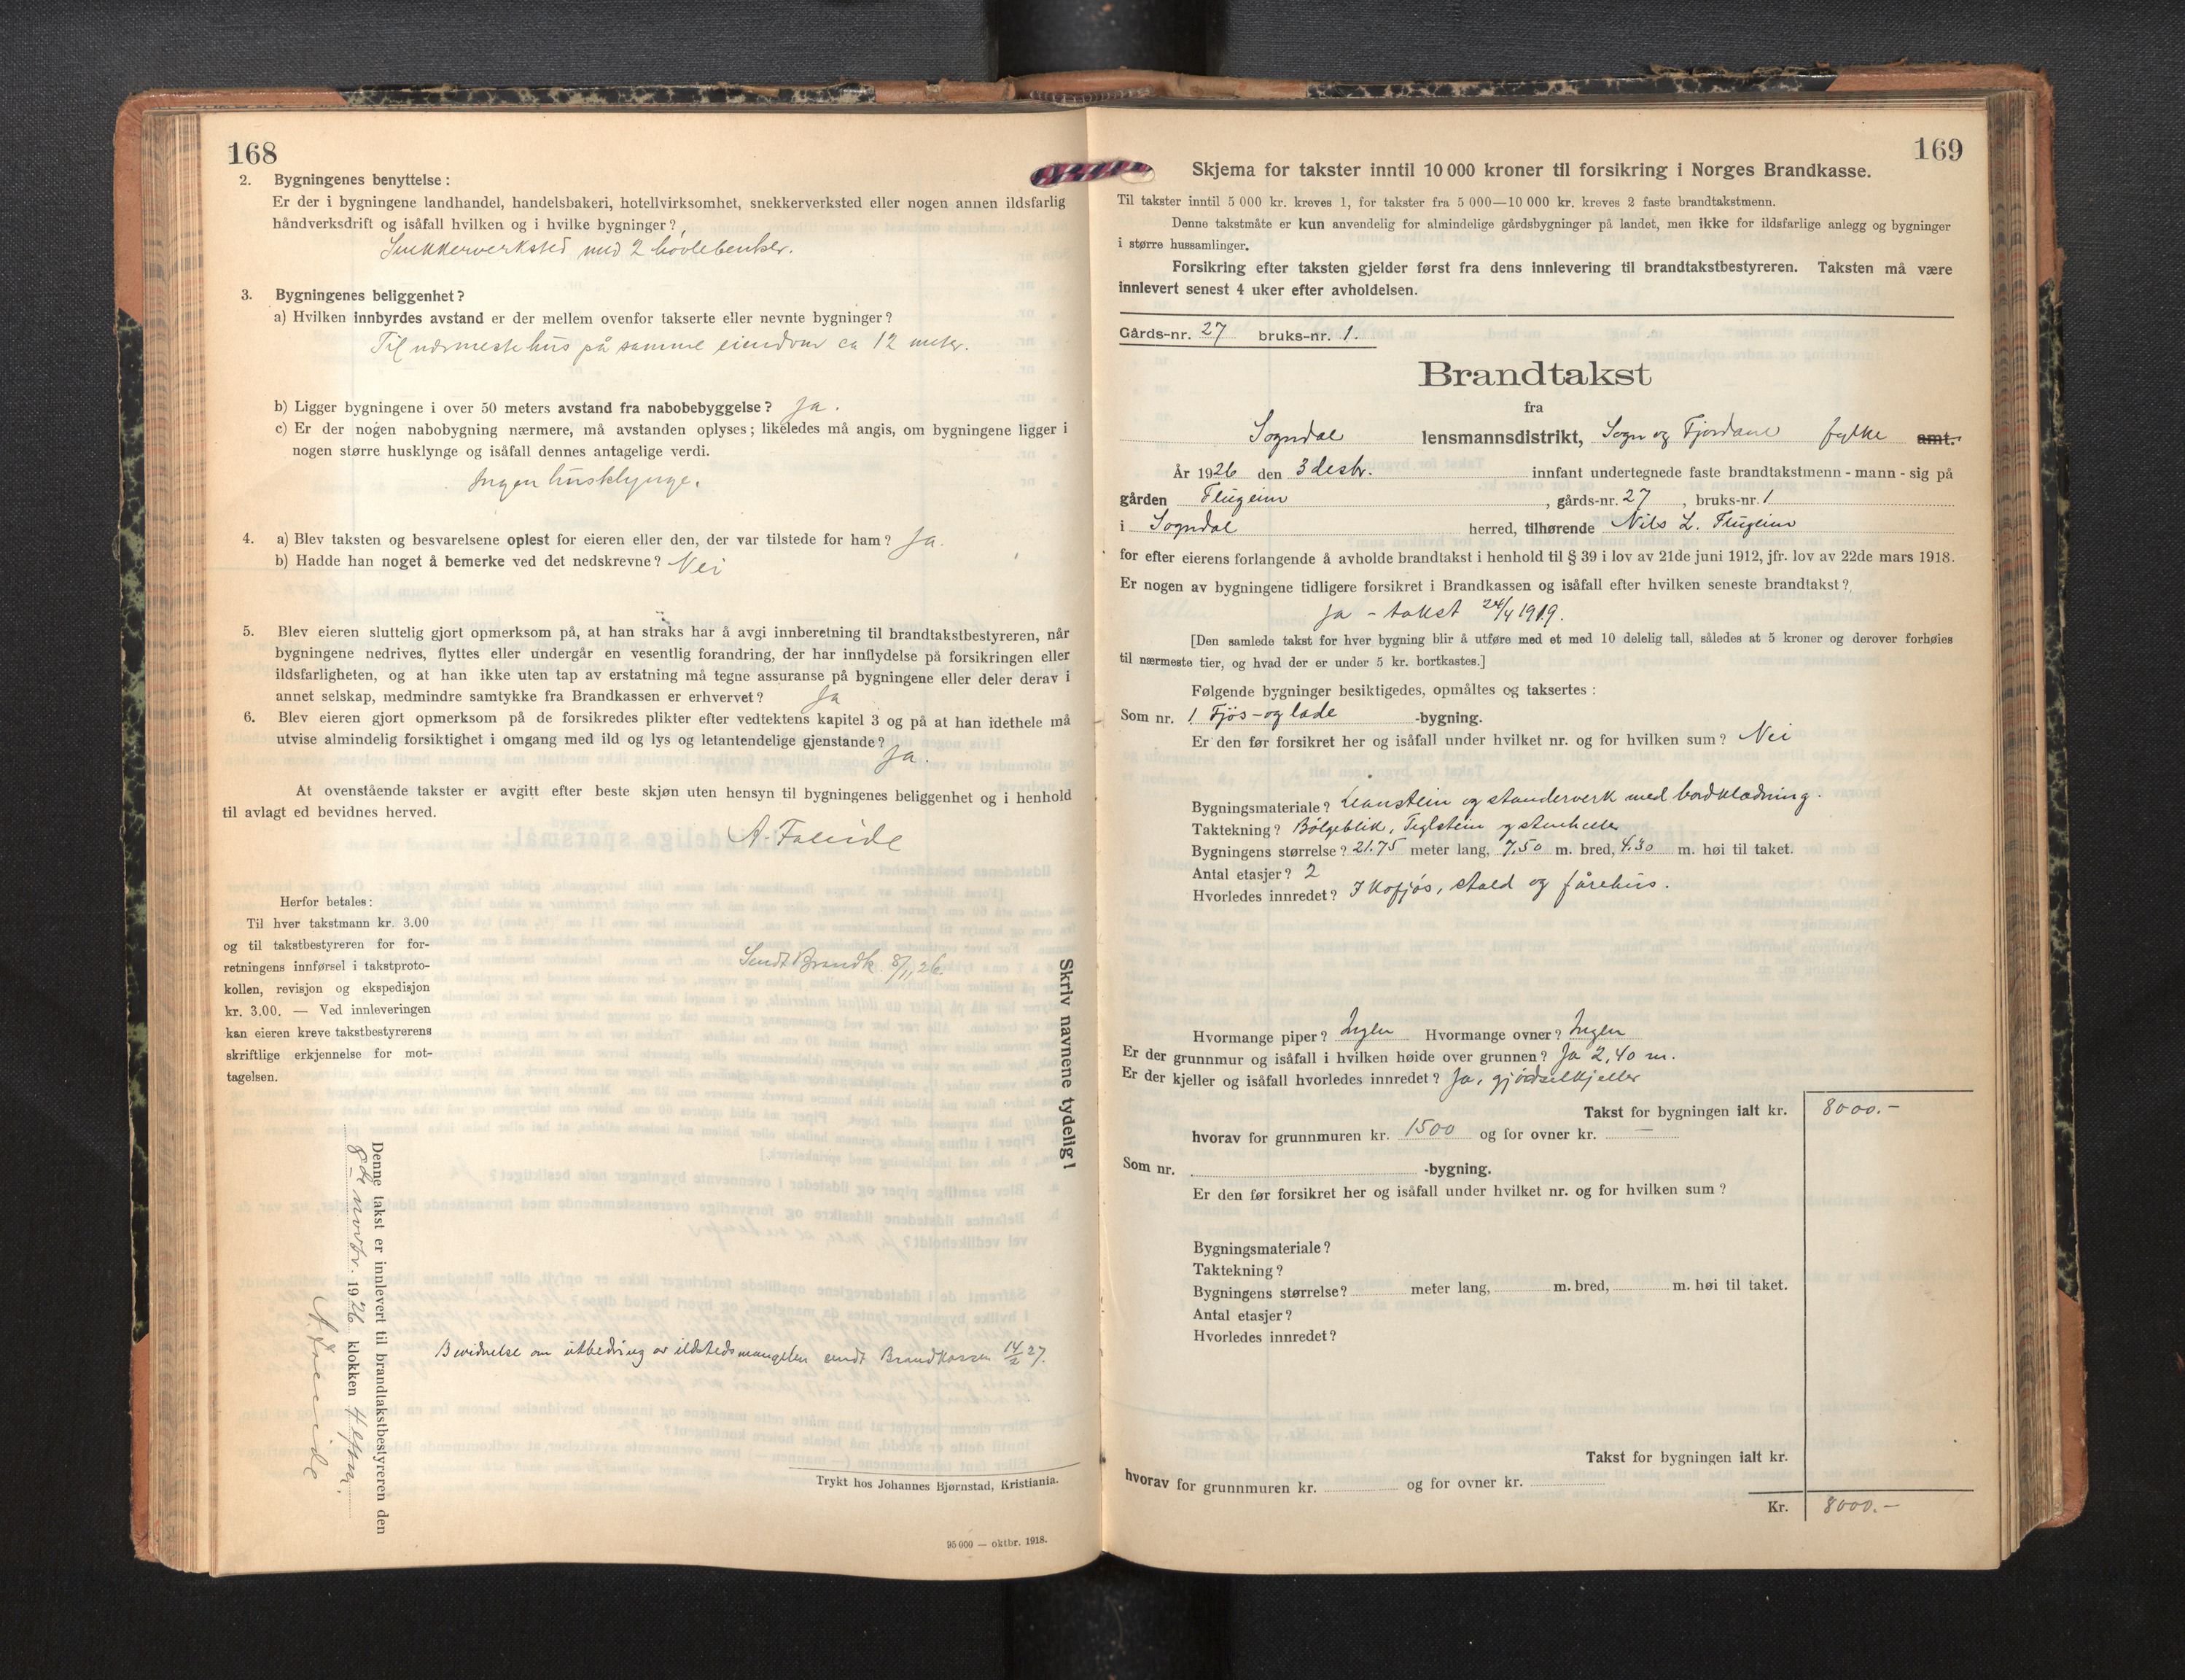 168
2. Bygningenes benyttelse :
Er der i bygningene landhandel, handelsbakeri, hotellvirksomhet, snekkerverksted eller nogen annen ildsfarlig
håndverksdrift og isåfall hvilken og i hvilke bygninger?
Snekkerverksted med 2 hövlebenker.
3. Bygningenes beliggenhet?
a) Hvilken innbyrdes avstand er der mellem ovenfor takserte eller nevnte bygninger?
Til nærmeste hus på samme eiendom ca 12 meter.
b) Ligger bygningene i over 50 meters avstand fra nabobebyggelse? Ja.
c) Er der nogen nabobygning nærmere, må avstanden oplyses; likeledes må angis, om bygningene ligger i
nogen større husklynge og isåfall dennes antagelige verdi.
Ingen husklynge.
4. a) Blev taksten og besvarelsene oplest for eieren eller den, der var tilstede for ham? Ja.
b) Hadde han noget å bemerke ved det nedskrevne? Nei
5. Blev eieren sluttelig gjort opmerksom på, at han straks har å avgi innberetning til brandtakstbestyreren, når
bygningene nedrives, flyttes eller undergår en vesentlig forandring, der har innflydelse på forsikringen eller
ildsfarligheten, og at han ikke uten tap av erstatning må tegne assuranse på bygningene eller deler derav i
annet selskap, medmindre samtykke fra Brandkassen er erhvervet? Ja
6. Blev eieren gjort opmerksom på de forsikredes plikter efter vedtektens kapitel 3 og på at han idethele må
utvise almindelig forsiktighet i omgang med ild og lys og letantendelige gjenstande?
Ja.
At ovenstående takster er avgitt efter beste skjøn uten hensyn til bygningenes beliggenhet og i henhold
til avlagt ed bevidnes herved.
Herfor betales:
Til hver takstmann kr. 3.00
og til takstbestyreren for for-
retningens innførsel i takstproto-
kollen, revisjon og ekspedisjon
kr. 3.00. — Ved innleveringen
kan eieren kreve takstbestyrerens
skriftlige erkjennelse for mot-
tagelsen.
Sendt Brandk. 8/11 26.
Skriv navnene tydelig!
Denne takst er innlevert til brandtakstbestyreren den
8de novbr. 1926 klokken
Bevidnelse om utbedring av ildstedsmangelen sendt Brandkassen 14/2 27.
Trykt hos Johannes Bjørnstad, Kristiania.
95 000 — oktbr. 1918.
169
Skjema for takster inntil 10 000 kroner til forsikring i Norges Brandkasse.
Til takster inntil 5 000 kr. kreves 1, for takster fra 5 000—10 000 kr. kreves 2 faste brandtakstmenn.
Denne takstmåte er kun anvendelig for almindelige gårdsbygninger på landet, men ikke for ildsfarlige anlegg og bygninger
i større hussamlinger.
Forsikring efter taksten gjelder først fra dens innlevering til brandtakstbestyreren. Taksten må være
innlevert senest 4 uker efter avholdelsen.
Gårds-nr. 27 bruks-nr. 1.
Brandtakst
fra
Sogndal lensmannsdistrikt, Sogn og Fjordane fylke amt.
År 1926 den 3 desbr. innfant undertegnede faste brandtakstmenn - mann - sig på
gården Flugeim, gårds-nr. 27, bruks-nr. 1
i Sogndal herred, tilhørende Nils L. Flugeim
for efter eierens forlangende å avholde brandtakst i henhold til § 39 i lov av 21de juni 1912, jfr. lov av 22de mars 1918.
Er nogen av bygningene tidligere forsikret i Brandkassen og isåfall efter hvilken seneste brandtakst?
Ja - takst 24/4 1919.
[Den samlede takst for hver bygning blir å utføre med et med 10 delelig tall, således at 5 kroner og derover forhøies
til nærmeste tier, og hvad der er under 5 kr. bortkastes.]
Følgende bygninger besiktigedes, opmåltes og taksertes :
Som nr. 1 Fjös- og lade -bygning.
Er den før forsikret her og isåfall under hvilket nr. og for hvilken sum? Nei
Bygningsmateriale? og standerverk med bordklædning.
Taktekning? Bölgeblik, Teglstein og stenheller
Bygningens størrelse? 21.75 meter lang, 7,50 m. bred, 4.30 m. høi til taket.
Antal etasjer? 2
Hvorledes innredet? I Kofjös, stald og fårehus.
Hvormange piper? Ingen Hvormange ovner? Ingen
Er der grunnmur og isåfall i hvilken høide over grunnen? Ja 2,40 m.
Er der kjeller og isåfall hvorledes innredet? Ja, gjödselkjeller
Takst for bygningen ialt kr. 8000.-
hvorav for grunnmuren kr. 1500 og for ovner kr. —
Som nr. -bygning.
Er den før forsikret her og isåfall under hvilket nr. og for hvilken sum?
Bygningsmateriale?
Taktekning?
Bygningens størrelse? meter lang, m. bred, m. høi til taket.
Antal etasjer?
Hvorledes innredet?
Takst for bygningen ialt kr.
hvorav for grunnmuren kr. og for ovner kr.
Kr. 8000.-